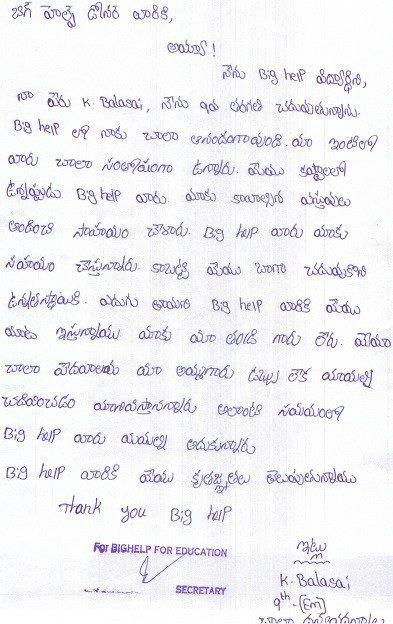 బిగ్ హెల్ప్ డోనర్ వారికి,
అయ్యా!
నేను Big help విద్యార్థిని,
నా పేరు K. Balasai, నేను 9వ తరగతి చదువుతున్నాను.
Big help లో నాకు చాలా ఆనందంగావుంది. మా ఇంటిలో
వారు చాలా సంతోషంగా ఉన్నారు. మేము కష్టాలలో
ఉన్నప్పుడు Big help వారు. మాకు కావాల్సిన వస్తువులు
అందించి సాహయం చేశారు. Big help వారు మాకు
సహాయం చేస్తున్నారు కాబట్టి మేము బాగా చదువుకొని
ఉన్నతస్థాయికి. ఎదుగు తామని Big help వారికి మేము
మాట ఇస్తున్నాము మాకు మా తండ్రి గారు లేరు. మేము
చాలా పేదవాలము మా అమ్మగారు డబ్బు లేక మమ్మల్ని
చదివించడం మానివేస్తానన్నారు అలాంటి సమయంలో
Big help వారు మమ్మల్ని ఆదుకున్నారు
Big help వారికి మేము కృతజ్ఞతలు తెలుపుతున్నాము
Thank you Big help
For BIGHELP FOR EDUCATION
SECRETARY
ఇట్లు
K. Balasai
9th - [Em]